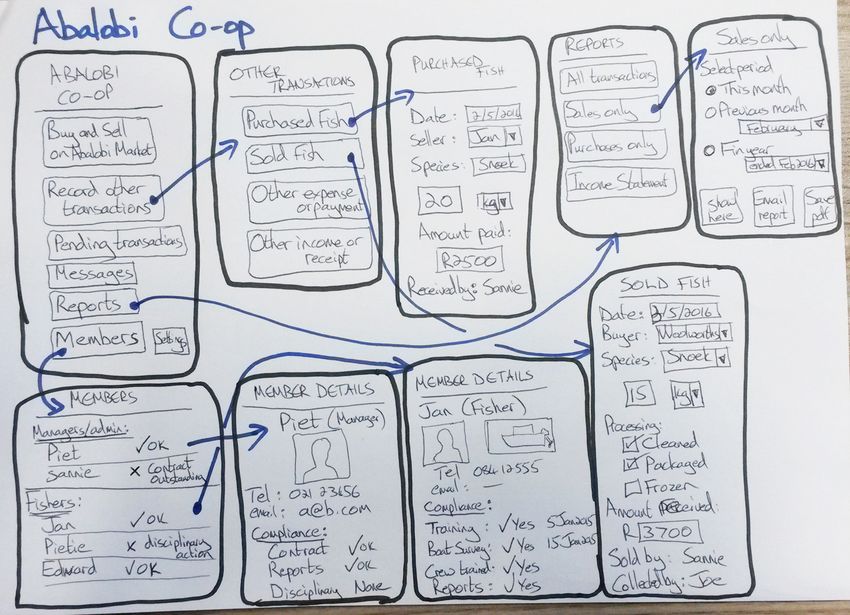 Abalobi Co-op
ABALOBI
CO-OP
Buy and Sell
on Abalobi Market
Record other
transactions
Pending transactions
Messages
Reports
Members
Settings
OTHER
TRANSACTIONS
Purchased Fish
Sold Fish
Other expense
or payment
Other income or
receipt
PURCHASED
FISH
Date: 2/5/2016
Seller: Jan
Species: Snoek
20 kg
Amount paid:
R2500
Received by: Sannie
REPORTS
All transactions
Sales only
Purchases only
Income Statement
Sales only
Select period
This month
Previous month
February
Fin year
ended Feb 2016
Show
here
Email
report
Save
pdf
MEMBERS
Managers/admin:
Piet ✓OK
Sannie x Contract
Outstanding
Fishers:
Jan ✓OK
Pietie x disciplinary
action
Edward ✓OK
MEMBER DETAILS
Piet (Manager)
Tel: 021 23456
email: a@b.com
Compliance:
Contract ✓OK
Reports ✓OK
Disciplinary None
MEMBER DETAILS
Jan (Fisher)
Tel 084 12555
email: —
Compliance:
Training: ✓Yes 5 Jan 2015
Boat Survey: ✓Yes 15 Jan 2015
Crew trained: ✓Yes
Reports: ✓Yes
SOLD FISH
Date: 3/5/2016
Buyer: Woolworths
Species: Snoek
15 kg
Processing:
Cleaned
Packaged
Frozen
Amount Received:
R 3700
Sold by: Sannie
Collected by: Joe